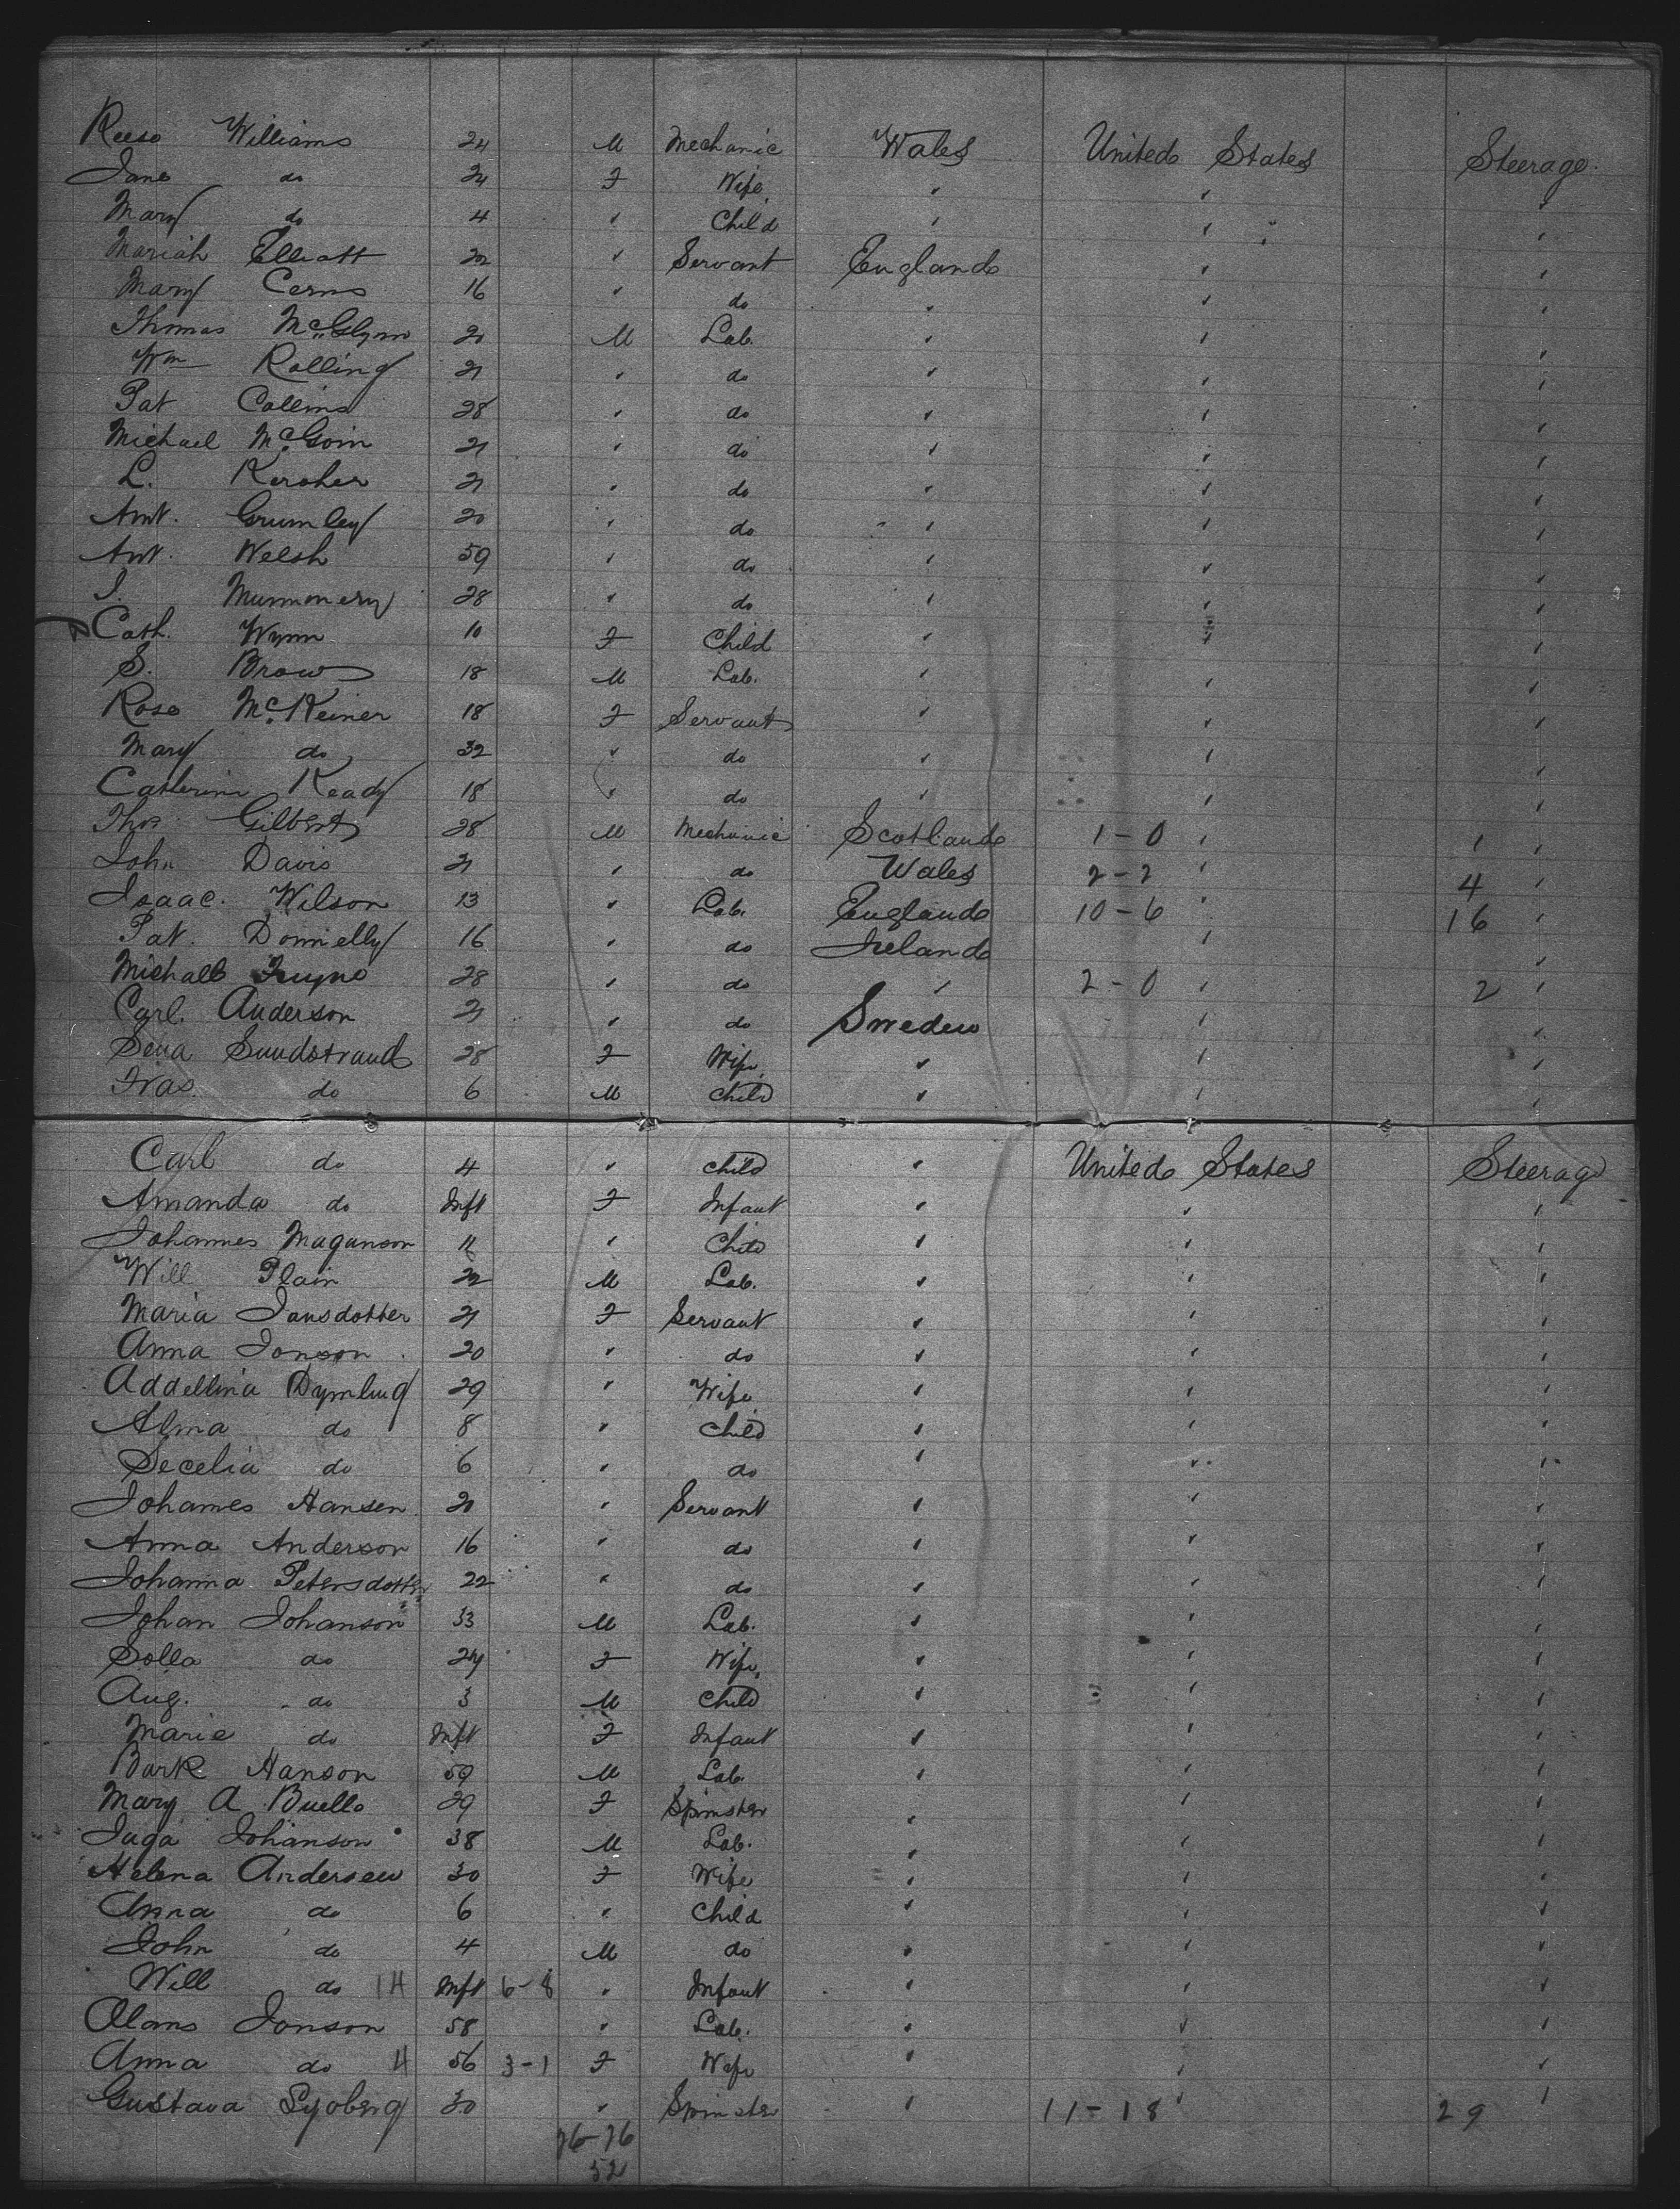 Reese Williams 24 M Mechanic Wales United States Steerage.
Jane do 24 F Wife " " "
Mary do 4 " Child " " "
Mariah Elliott 22 " Servant England " "
Mary Cerns 16 " do " " "
Thomas McGlynn 20 M Lab. " " "
Wm Rolling 21 " do " " "
Pat Collins 28 " do " " "
Michael McGoin 21 " do " " "
L. Kersher 21 " do " " "
Ant. Grumley 20 " do " " "
Ant. Welsh 59 " do " " "
J. Munnonery 28 " do " " "
Cath. Wynn 10 F Child " " "
S. Brow 18 M Lab. " " "
Rose McKeiner 18 F Servant " " "
Mary do 32 " do " " "
Catherine Keady 18 " do " " "
Thos Gilbert 28 M Mechanic Scotland 1-0 " 1 "
John Davis 21 " do Wales 2-2 " 4 "
Isaac. Wilson 13 " Lab. England 10-6 " 16 "
Pat. Donnelly 16 " do Ireland " "
Michall 28 " do " 2-0 " 2 "
Carl. Anderson 21 " do Sweden " "
Sena Sundstrand 28 F Wife " " "
Ivas. do 6 M Child " " "
Carl do 4 " Child " United States Steerage
Amanda do Inft F Infant " " "
Johannes Maganson 11 " Child " " "
Will Plain 22 M Lab. " " "
Maria Jansdotter 21 F Servant " " "
Anna Jonson 20 " do " " "
Addellina Dymling 29 " Wife " " "
Alma do 8 " Child " " "
Secelia do 6 " do " " "
Johannes Hansen 20 " Servant " " "
Anna Anderson 16 " do " " "
Johanna Petersdotter 22 " do " " "
Johan Johanson 33 M Lab. " " "
Solla do 24 F Wife " " "
Aug. do 3 M Child " " "
Marie do Inft F Infant " " "
Bark Hanson 59 M Lab. " " "
Mary A Buello 29 F Spinster " " "
Jaga Johanson 38 M Lab. " " "
Helena Andersen 30 F Wife " " "
Anna do 6 " Child " " "
John do 4 M do " " "
Will do 14 Inft 6-8 " Infant " " "
Olams Jonson 58 " Lab. " " "
Anna do 4 56 3-1 F Wife " " "
Gustava Syoberg 30 " Spinster " 11-18 " 29 "
26-26
52